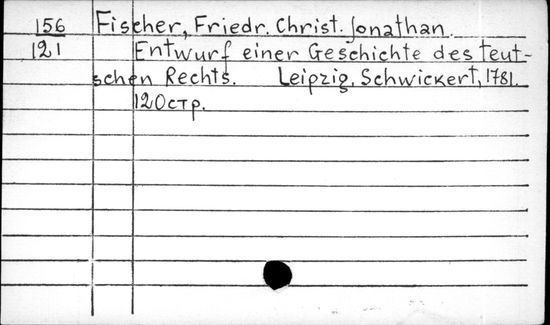 156 Fischer, Friedr. Christ. Jonathan.
121 Entwurf einer Geschichte des teut-
schen Rechts. Leipzig, Schwickert, 1781.
120 стр.